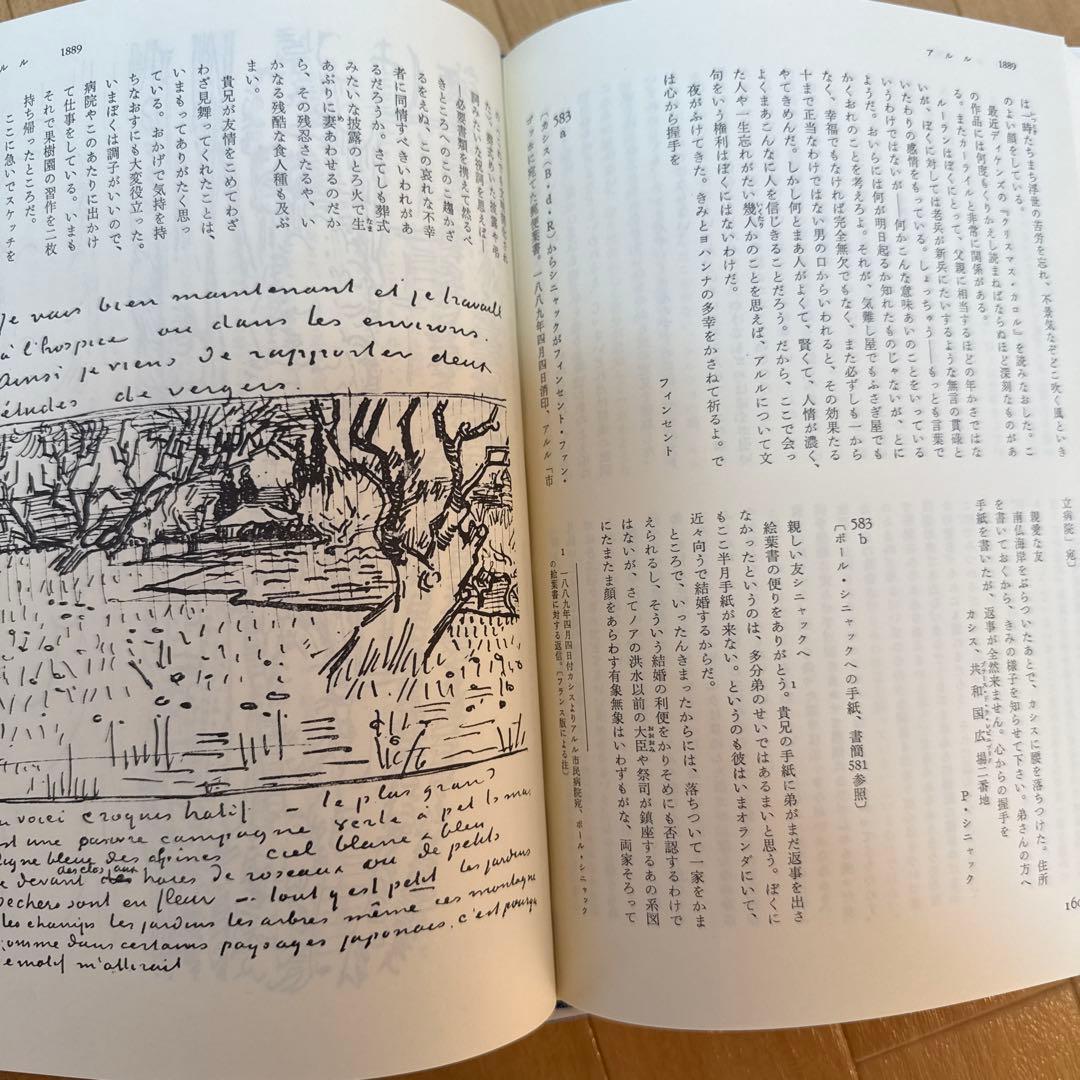 アルル 1889
は一時たちまち浮世の苦労を忘れ、不景気などどこ吹く風といき
のよい顔をしている。
最近ディケンズの『クリスマス・カロル』を読みなおした。こ
の作品には何度もくりかえし読まねばならぬほど深刻なものがあ
る。またカーライルと非常に関係がある。
ルーランはぼくにとって、父親に相当するほどの年かさではな
いが、ぼくに対しては老兵が新兵にたいするような無言の貫碌と
いたわりの感情をもっている。しょっちゅう——もっとも言葉で
いうわけではないが——何かこんな意味あいのことをいっている
ようだ。おいらには何が明日起るか知れたものじゃないが、とに
かくおれのことを考えろよ。それが、気難し屋でもふさぎ屋でも
なく、幸福でもなければ完全無欠でもなく、また必ずしも一から
十まで正当なわけではない男の口からいわれると、その効果たる
やてきめんだ。しかし何とまあ人がよくて、賢くて、人情が濃く、
よくまあこんなに人を信じきることだろう。だから、ここで会っ
た人や一生忘れがたい幾人かのことを思えば、アルルについて文
句をいう権利はぼくにはないわけだ。
夜がふけてきた。きみとヨハンナの多幸をかさねて祈るよ。で
は心から握手を
フィンセント
583a
〔カシス（B・d・R）からシニャックがフィンセント・ファン・
ゴッホに宛てた絵葉書。一八八九年四月四日消印、アルル「市
立病院」宛〕
親愛な友
南仏海岸をぶらついたあとで、カシスに腰を落ちつけた。住所
を書いておくから、きみの様子を知らせて下さい。弟さんの方へ
手紙を書いたが、返事が全然来ません。心からの握手を
カシス、共和国広場二番地
P・シニャック
583b
〔ポール・シニャックへの手紙、書簡581参照〕
親しい友シニャックへ
絵葉書の便りをありがとう。1貴兄の手紙に弟がまだ返事を出さ
なかったというのは、多分弟のせいではあるまいと思う。ぼくに
もここ半月手紙が来ない。というのも彼はいまオランダにいて、
近々向うで結婚するからだ。
ところで、いったんきまったからには、落ちついて一家をかま
えられるし、そういう結婚の利便をかりそめにも否認するわけで
はないが、さてノアの洪水以前の大臣や祭司が鎮座するあの系図
にたまたま顔をあらわす有象無象はいわずもがな、両家そろって
1 一八八九年四月四日付カシスよりアルル市民病院宛、ポール・シニャック
の絵葉書に対する返信。〔フランス版による注〕
ルル 1889
——必要書類を携えて然るべ
きところへのこのこ趨かざ
るをえぬ、この哀れな不幸
者に同情すべきいわれがあ
るだろうか。さてしも葬式
みたいな披露のとろ火で生
あぶりに妻あわせるのだか
ら、その残忍さたるや、い
かなる残酷な食人種も及ぶ
まい。
貴兄が友情をこめてわざ
わざ見舞ってくれたことは、
いまもってありがたく思っ
ている。おかげで気持を持
ちなおすにも大変役立った。
いまぼくは調子がいいので、
病院やこのあたりに出かけ
て仕事をしている。いまも
それで果樹園の習作を二枚
持ち帰ったところだ。
ここに急いでスケッチを
Je vais bien maintenant et je travaille
à l'hospice ou dans les environs.
Ainsi je viens de rapporter deux
études de vergers.
en voici croquis hatif — le plus grand
est une pauvre campagne verte à petits mas
ligne bleue des alpines ciel blanc & bleu
devant des clos aux haies de roseaux ou de petits
pechers sont en fleur — tout y est petit les jardins
les champs les jardins les arbres même ces montagnes
comme dans certains paysages japonais, c'est pourquoi
ce motif m'attirait